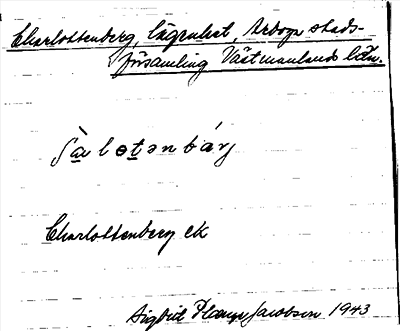 Charlottenberg, lägenhet, Arboga stads-
församling Västmanlands län.
ʃàlɵtənbárj
Charlottenberg ek
Sigurd Jacobsen 1943